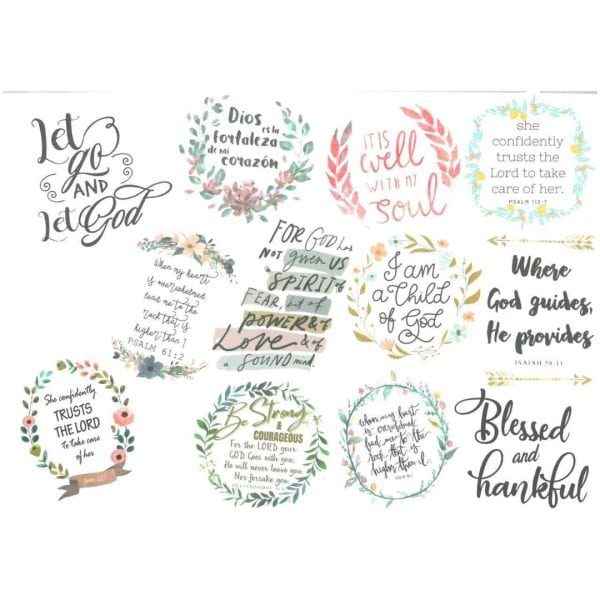 Let
go
AND
Let God
Dios
es la
fortaleza
de mi
corazón
IT IS
well
WITH MY
Soul
she
confidently
trusts the
Lord to take
care of her.
PSALM 112:7
When my heart
is overwhelmed
lead me to the
rock that is
higher than I
PSALM 61:2
FOR GOD has
NOT given US
SPIRIT of
FEAR, but of
POWER & of
Love & of
a SOUND mind.
I am
a Child
of God
Where
God guides,
He provides
ISAIAH 58:11
She confidently
TRUSTS
THE LORD
to take care
of her
Be Strong
&
COURAGEOUS
For the LORD your
GOD Goes with you;
He will never leave you
Nor forsake you.
When my heart
is overwhelmed
lead me to the
rock that is
higher than I.
Blessed
and
hankful